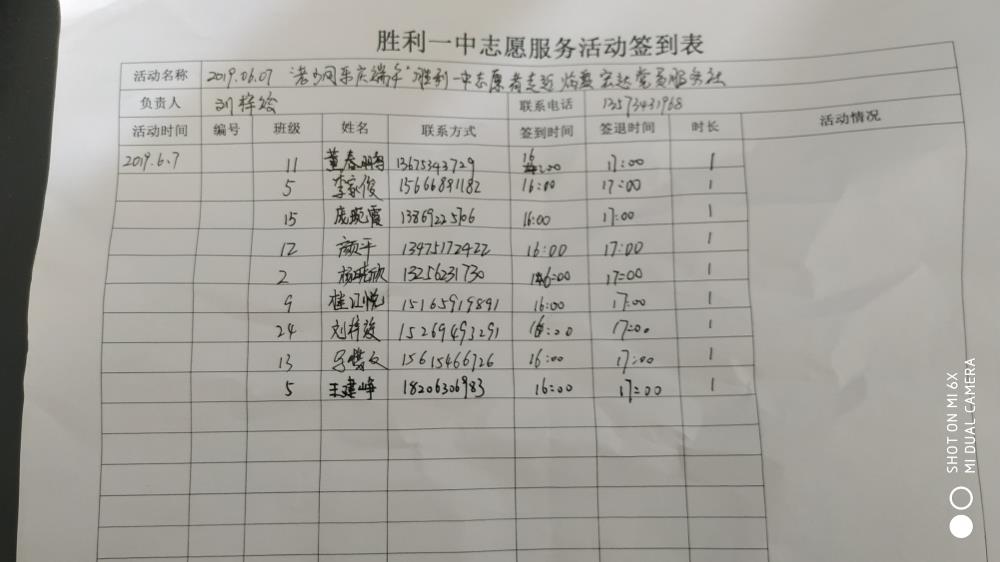 胜利一中志愿服务活动签到表
活动名称 2019.06.07 "老少同乐庆端午"胜利一中志愿者走近 宏达党员服务社
负责人 刘梓筱 联系电话 13573431968
活动时间 编号 班级 姓名 联系方式 签到时间 签退时间 时长 活动情况
2019.6.7 11 董春 13675343729 16:00 17:00 1
5 李家俊 15666891182 16:00 17:00 1
15 庞 霞 13869225706 16:00 17:00 1
12 颜平 13475172422 16:00 17:00 1
2 杨 欣 13256231730 16:00 17:00 1
9 桂江悦 15165919891 16:00 17:00 1
24 刘梓筱 15269493291 16:00 17:00 1
13 15615466726 16:00 17:00 1
5 王建峥 18206306983 16:00 17:00 1
SHOT ON MI 6X
MI DUAL CAMERA